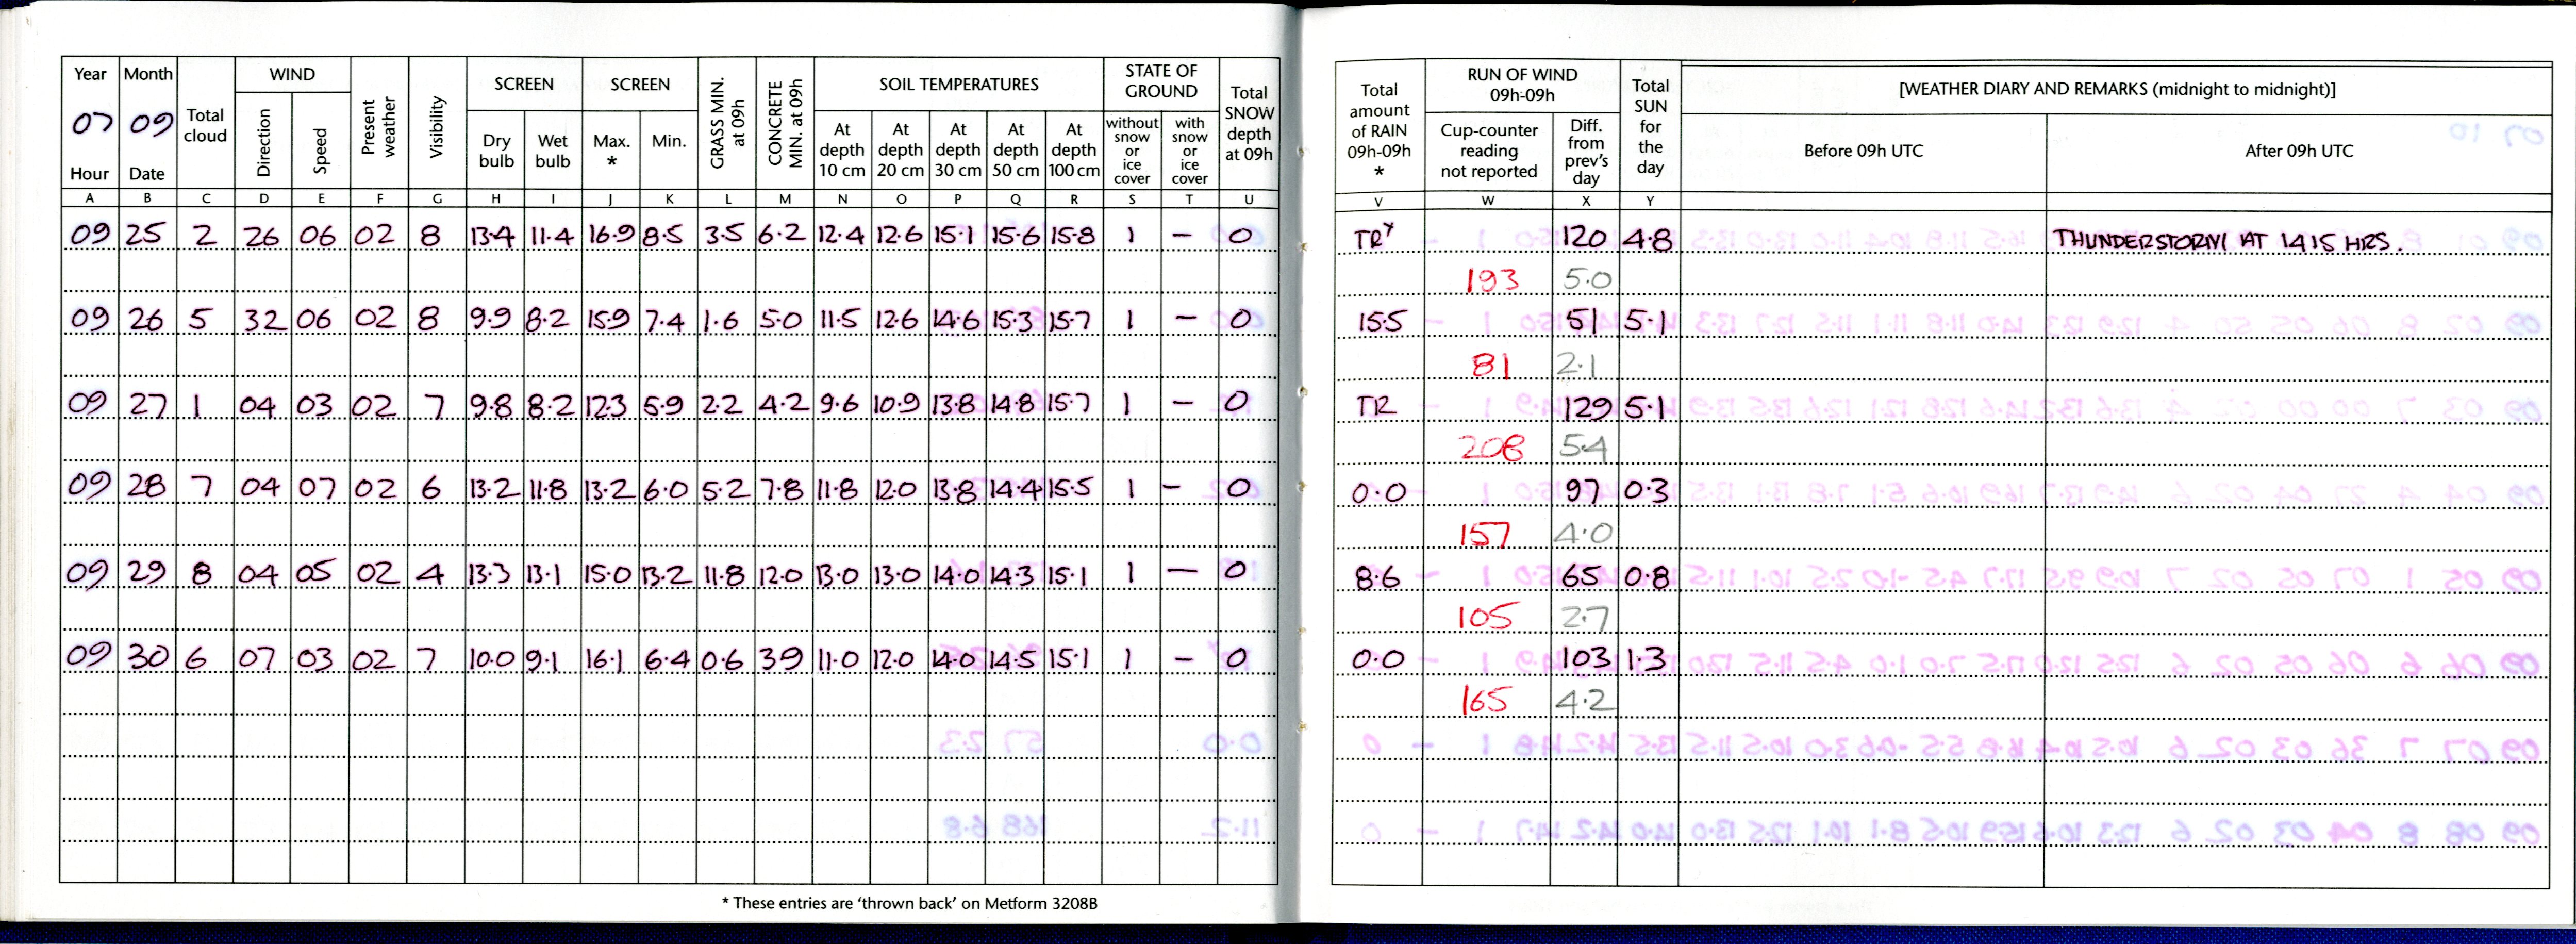 Year Month Total cloud WIND Present weather Visibility SCREEN SCREEN GRASS MIN. at 09h CONCRETE MIN. at 09h SOIL TEMPERATURES STATE OF GROUND Total SNOW depth at 09h
07 09 Direction Speed Dry bulb Wet bulb Max. * Min. At depth 10 cm At depth 20 cm At depth 30 cm At depth 50 cm At depth 100 cm without snow or ice cover with snow or ice cover
Hour Date
A B C D E F G H I J K L M N O P Q R S T U
09 25 2 26 06 02 8 13.4 11.4 16.9 8.5 3.5 6.2 12.4 12.6 15.1 15.6 15.8 1 – 0
09 26 5 32 06 02 8 9.9 8.2 15.9 7.4 1.6 5.0 11.5 12.6 14.6 15.3 15.7 1 – 0
09 27 1 04 03 02 7 9.8 8.2 12.3 5.9 2.2 4.2 9.6 10.9 13.8 14.8 15.7 1 – 0
09 28 7 04 07 02 6 13.2 11.8 13.2 6.0 5.2 7.8 11.8 12.0 13.8 14.4 15.5 1 – 0
09 29 8 04 05 02 4 13.3 13.1 15.0 13.2 11.8 12.0 13.0 13.0 14.0 14.3 15.1 1 – 0
09 30 6 07 03 02 7 10.0 9.1 16.1 6.4 0.6 3.9 11.0 12.0 14.0 14.5 15.1 1 – 0
* These entries are ‘thrown back’ on Metform 3208B
Total amount of RAIN 09h-09h * RUN OF WIND 09h-09h Total SUN for the day [WEATHER DIARY AND REMARKS (midnight to midnight)]
Cup-counter reading not reported Diff. from prev's day Before 09h UTC After 09h UTC
V W X Y
TR* 120 4.8 THUNDERSTORM AT 1415 HRS.
193 5.0
15.5 51 5.1
81 2.1
TR 129 5.1
208 5.4
0.0 97 0.3
157 4.0
8.6 65 0.8
105 2.7
0.0 103 1.3
165 4.2